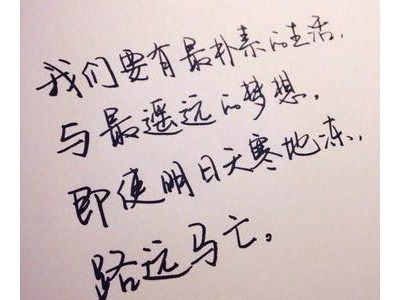 我们要有最朴素的生活，
与最遥远的梦想。
即使明日天寒地冻，
路远马亡。